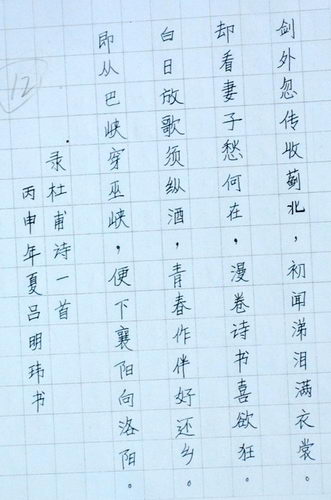 剑外忽传收蓟北，初闻涕泪满衣裳。
却看妻子愁何在，漫卷诗书喜欲狂。
白日放歌须纵酒，青春作伴好还乡。
即从巴峡穿巫峡，便下襄阳向洛阳。
录杜甫诗一首
丙申年夏吕明玮书
12